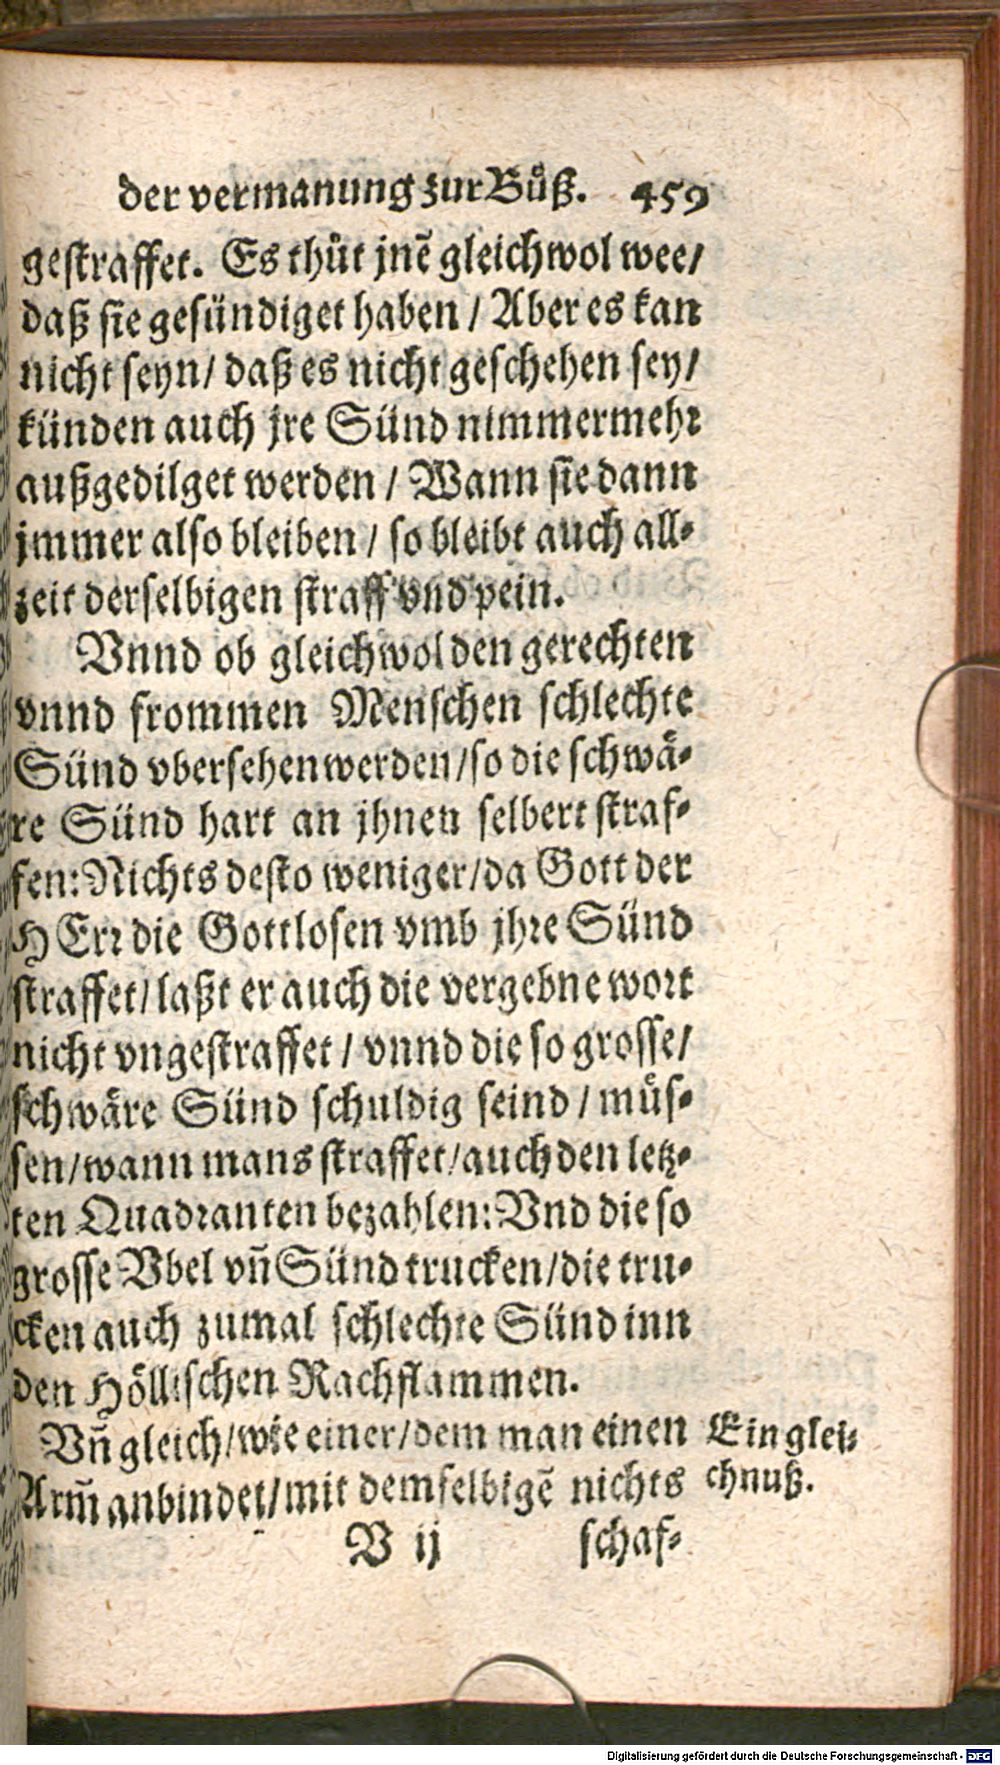 der vermanung zur Bůß. 459
gestraffet. Es thůt jnẽ gleichwol wee/
daß sie gesündiget haben / Aber es kan
nicht seyn/ daß es nicht geschehen sey/
künden auch jre Sünd nimmermehr
außgedilget werden / Wann sie dann
jmmer also bleiben / so bleibt auch all-
zeit derselbigen straff vnd pein.
Vnnd ob gleichwol den gerechten
vnnd frommen Menschen schlechte
Sünd vbersehen werden/so die schwä-
re Sünd hart an jhnen selbert straf-
fen: Nichts desto weniger/da Gott der
HErr die Gottlosen vmb jhre Sünd
straffet/ laßt er auch die vergebne wort
nicht vngestraffet / vnnd die so grosse/
schwäre Sünd schuldig seind / můs-
sen/wann mans straffet/auch den letz-
ten Quadranten bezahlen: Vnd die so
grosse Vbel vñ Sünd trucken/die tru-
cken auch zumal schlechte Sünd inn
den Höllischen Rachflammen.
Vñ gleich/wie einer/dem man einen
Arm̃ anbindet/mit demselbigẽ nichts
Ein glei-
chnuß.
V ij schaf-
Digitalisierung gefördert durch die Deutsche Forschungsgemeinschaft - DFG